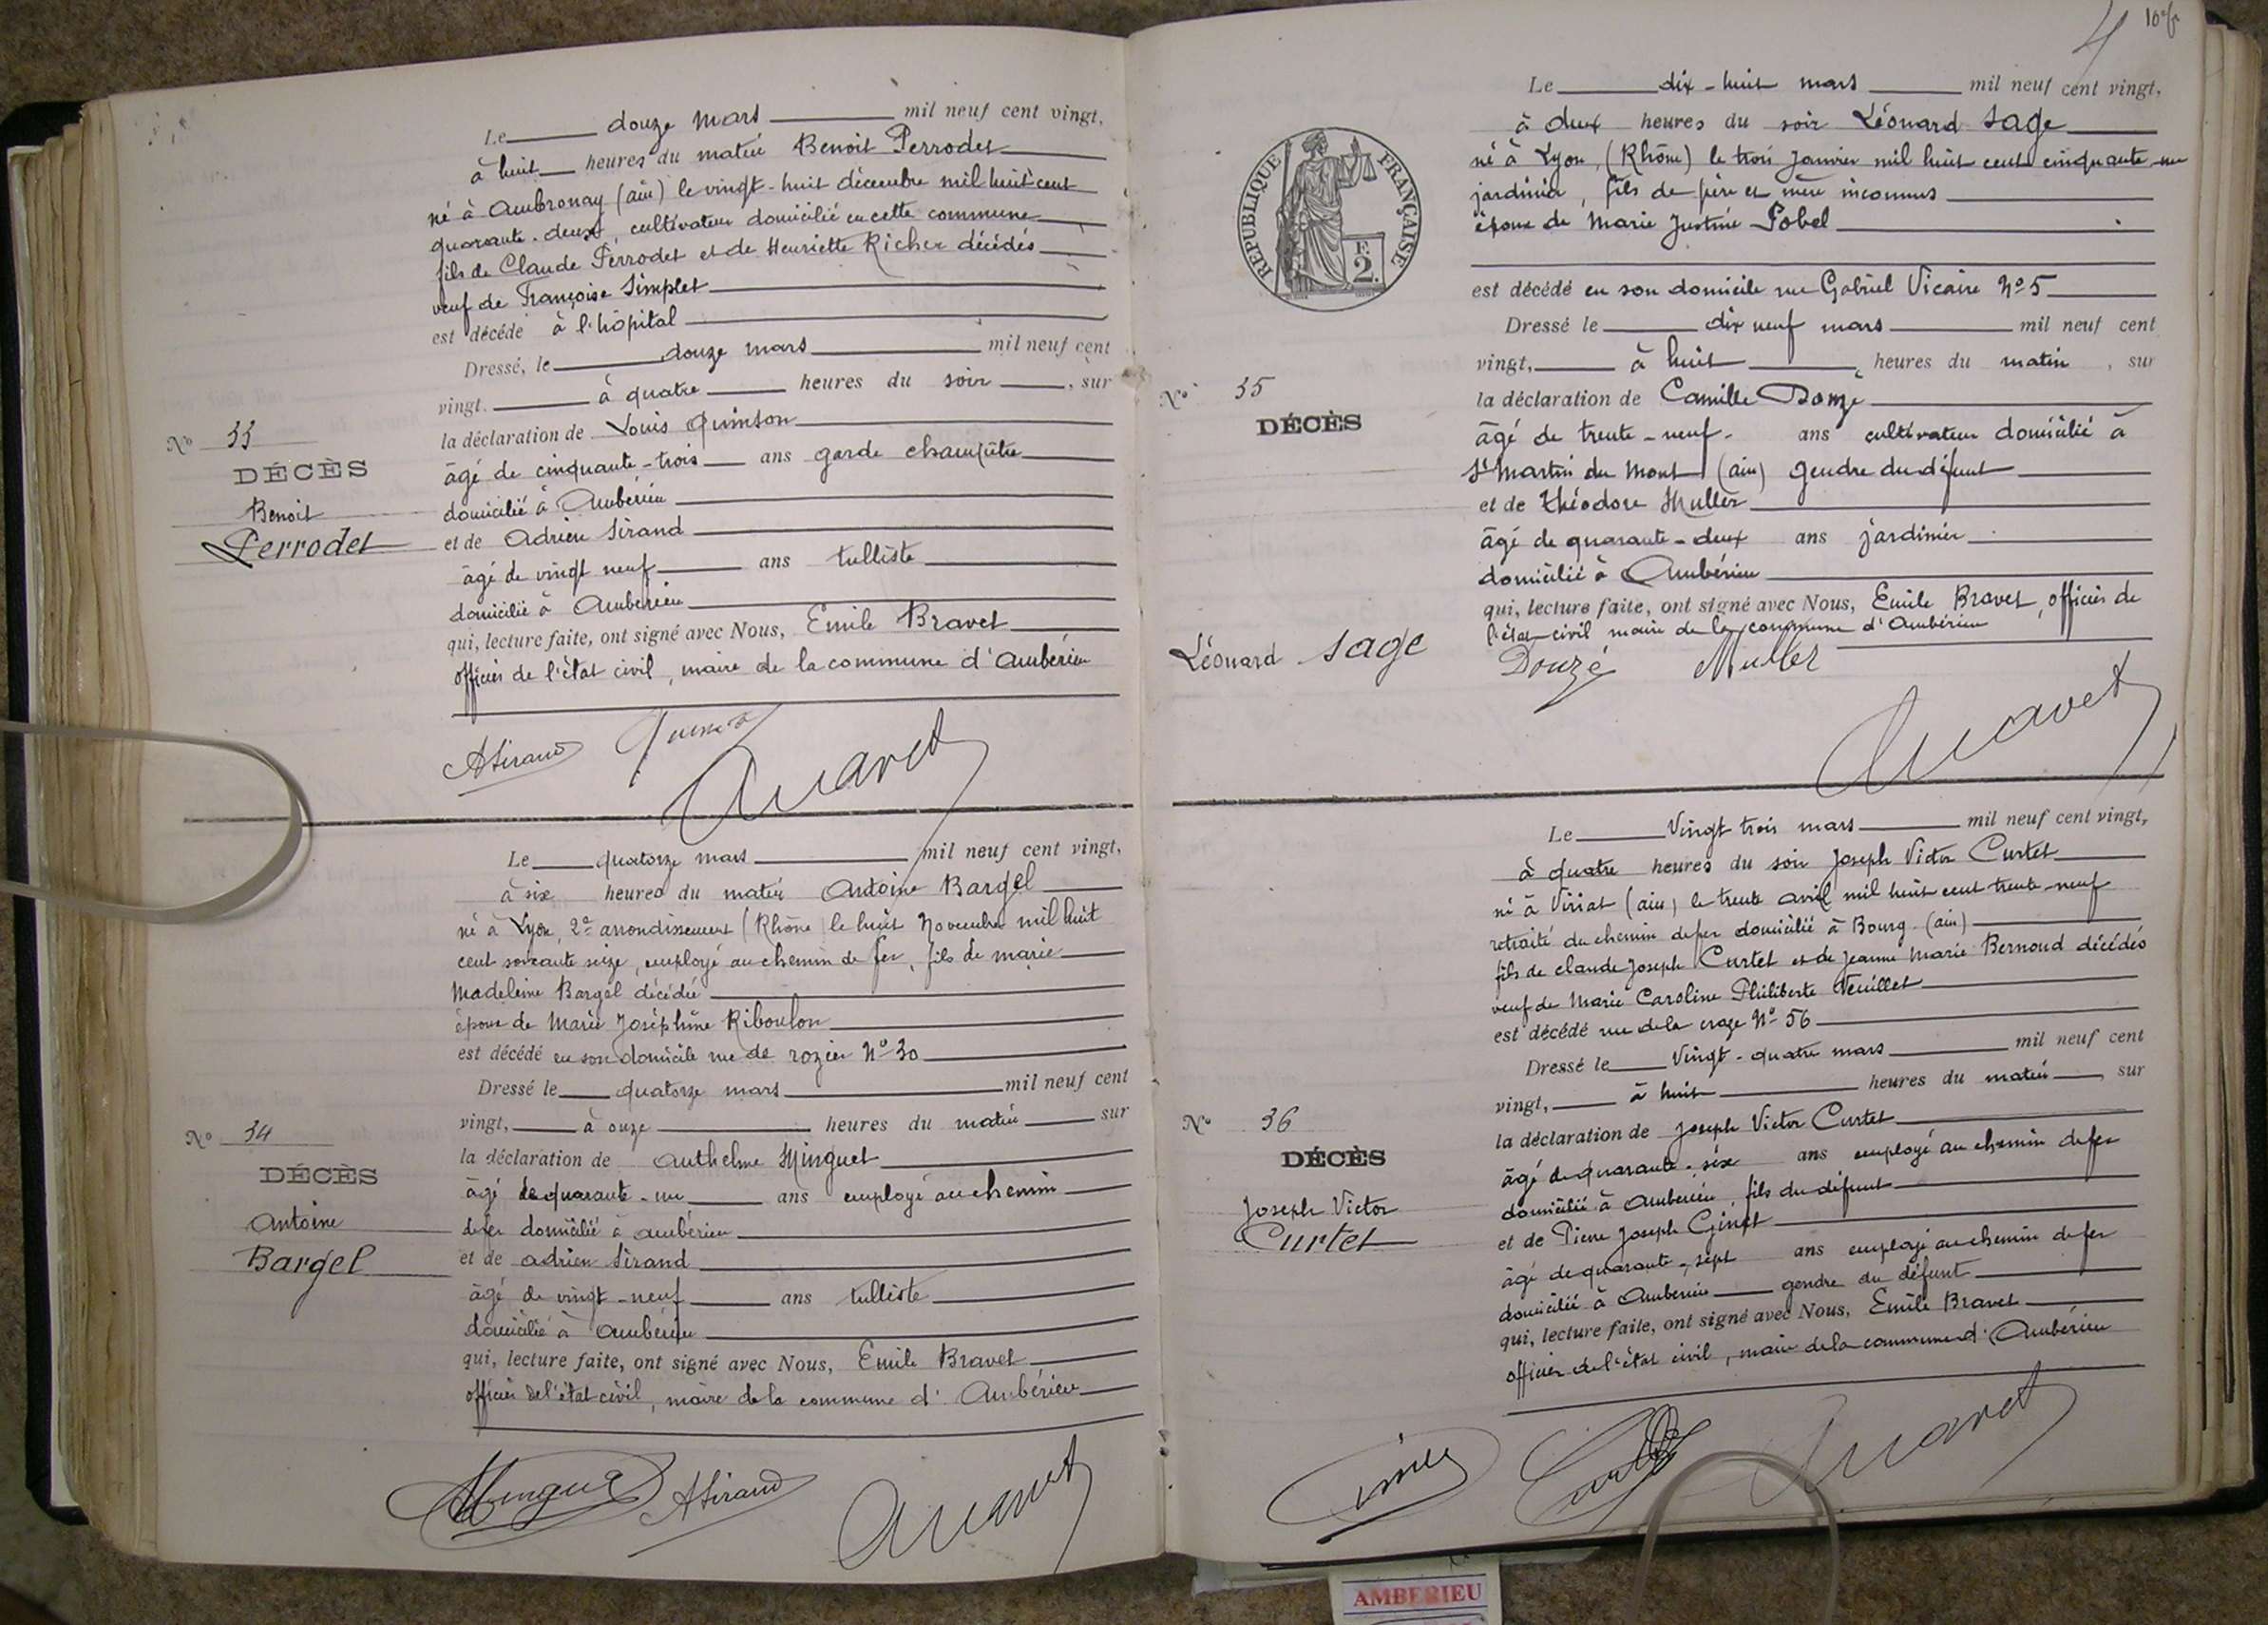 Le douze mars mil neuf cent vingt,
à huit heures du matin Benoit Perrodet
né à Ambronay (ain) le vingt-huit décembre mil huit cent
quarante-deux, cultivateur domicilié en cette commune
fils de Claude Perrodet et de Henriette Richer décédés
veuf de Françoise Simplet
est décédé à l'hôpital
Dressé, le douze mars mil neuf cent
vingt. à quatre heures du soir, sur
la déclaration de Louis Quinson
âgé de cinquante-trois ans garde champêtre
domicilié à Ambérieu
et de Adrien Sirand
âgé de vingt neuf ans tulliste
domicilié à Ambérieu
qui, lecture faite, ont signé avec Nous, Emile Bravet
officier de l'état civil, maire de la commune d'Ambérieu
No 33
DÉCÈS
Benoit
Perrodet
ASirand Quinson
Bravet
Le quatorze mars mil neuf cent vingt,
à six heures du matin Antoine Bargel
né à Lyon, 2e arrondissement (Rhône le huit Novembre mil huit
cent soixante seize, employé au chemin de fer, fils de marie
Madeleine Bargel décédée
époux de Marie Joséphine Riboulon
est décédé en son domicile rue de rozier No 30
Dressé le quatorze mars mil neuf cent
vingt, à onze heures du matin sur
la déclaration de Anthelme Minguet
âgé de quarante-un ans employé au chemin
de fer domicilié à ambérieu
et de adrien Sirand
âgé de vingt-neuf ans tulliste
domicilié à ambérieu
qui, lecture faite, ont signé avec Nous, Emile Bravet
officier de l'état civil, maire de la commune d'Ambérieu
No 34
DÉCÈS
Antoine
Bargel
Minguet ASirand Bravet
4
RÉPUBLIQUE FRANÇAISE
F.
2.
Le dix-huit mars mil neuf cent vingt,
à deux heures du soir Léonard Sage
né à Lyon, (Rhône) le trois Janvier mil huit cent cinquante-un
jardinier, fils de père et mère inconnus
époux de Marie Justine Pobel
est décédé en son domicile rue Gabriel Vicaire No 5
Dressé le dix neuf mars mil neuf cent
vingt, à huit heures du matin, sur
la déclaration de Camille Donzé
âgé de trente-neuf ans cultivateur domicilié à
St Martin du Mont (ain) gendre du défunt
et de Théodore Muller
âgé de quarante-deux ans jardinier
domicilié à Ambérieu
qui, lecture faite, ont signé avec Nous, Emile Bravet, officier de
l'état civil maire de la commune d'Ambérieu
No 35
DÉCÈS
Léonard Sage
Donzé Muller
Bravet
Le Vingt trois mars mil neuf cent vingt,
à quatre heures du soir Joseph Victor Curtet
né à Viriat (ain) le trente avril mil huit cent trente-neuf
retraité du chemin de fer domicilié à Bourg (ain)
fils de claude Joseph Curtet et de Jeanne Marie Bernoud décédés
veuf de Marie Caroline Philiberte Veuillet
est décédé rue de la craze No 56
Dressé le Vingt-quatre mars mil neuf cent
vingt, à huit heures du matin, sur
la déclaration de Joseph Victor Curtet
âgé de quarante-six ans employé au chemin de fer
domicilié à Ambérieu, fils du défunt
et de Pierre Joseph Ginet
âgé de quarante-sept ans employé au chemin de fer
domicilié à Ambérieu gendre du défunt
qui, lecture faite, ont signé avec Nous, Emile Bravet
officier de l'état civil, maire de la commune d'Ambérieu
No 36
DÉCÈS
Joseph Victor
Curtet
Ginet Curtet Bravet
AMBERIEU